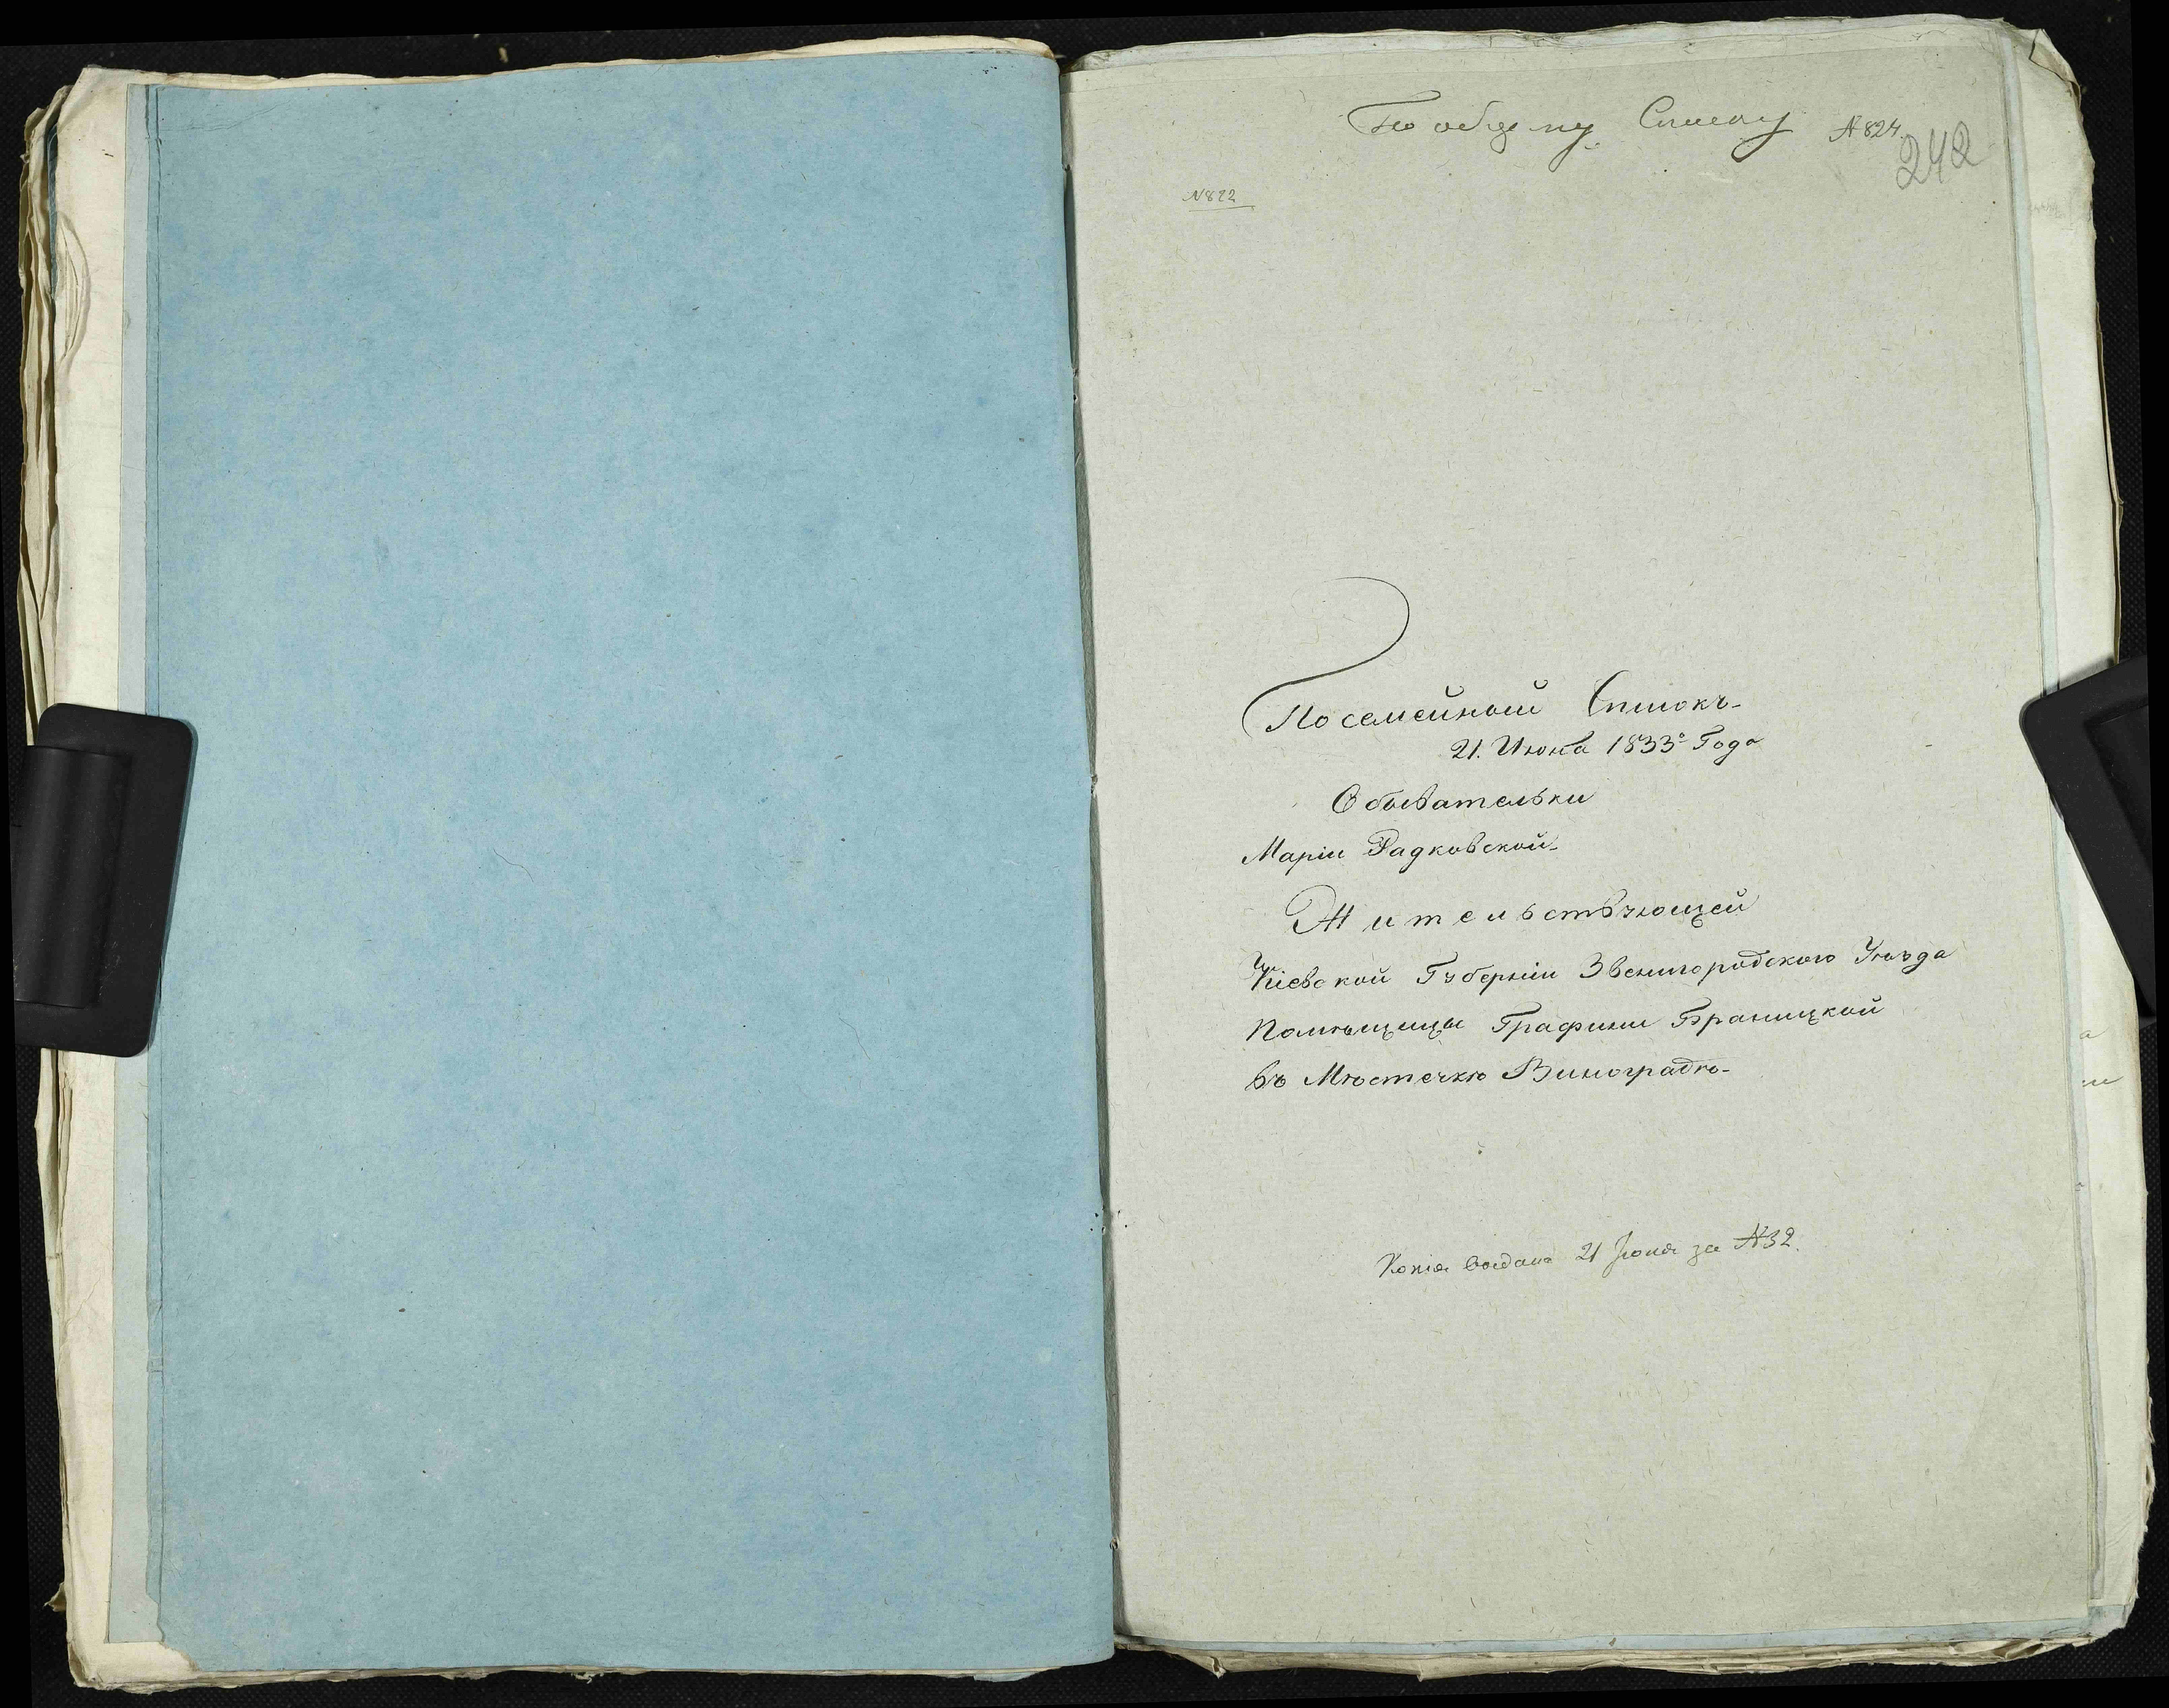 По общему Списку № 824.
242
№ 822
Посемейный Списокъ
21. Июня 1833го Года
Обывательки
Маріи Радковской
Жительствующей
Кіевской Губерніи Звенигородского Уѣзда
Помѣщицы Графини Браницкой
въ Мѣстечкѣ Виноградѣ
Копія выдана 21 Іюня за № 32.